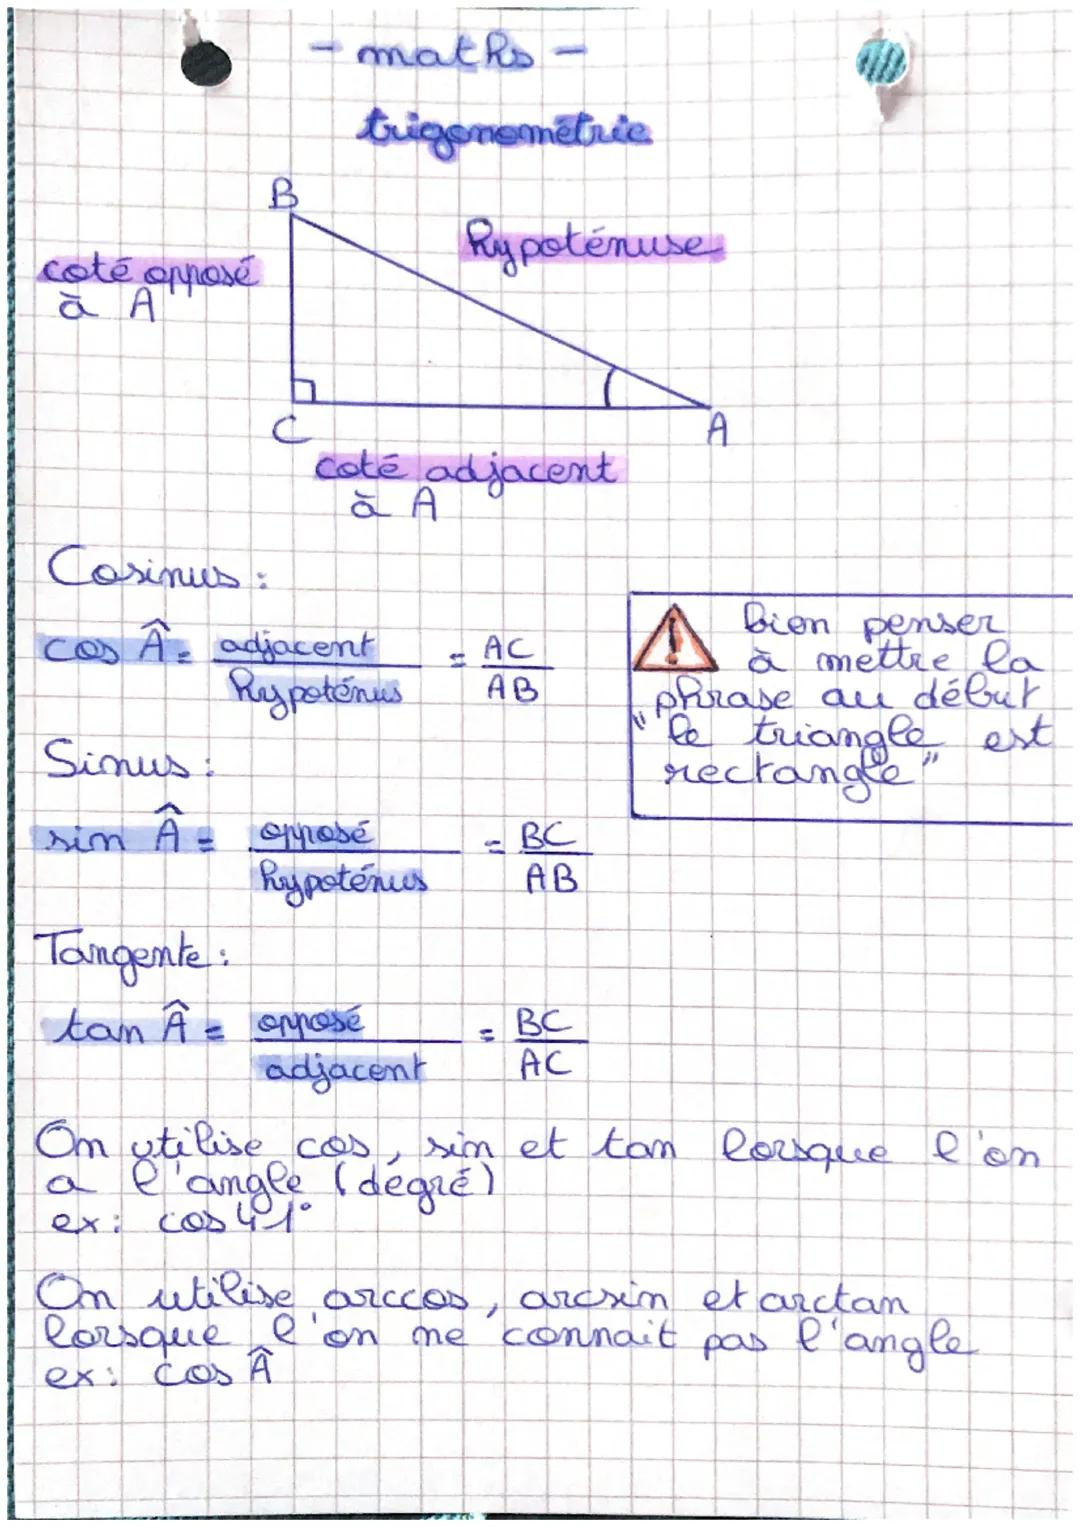 - maths -
trigonométrie
B
hypoténuse
coté opposé
à A
C
A
coté adjacent
à A
Cosinus :
cos Â = adjacent = AC
hypoténus AB
bien penser
à mettre la
phrase au début
"le triangle est
rectangle"
Sinus :
sin Â = opposé = BC
hypoténus AB
Tangente :
tan Â = opposé = BC
adjacent AC
On utilise cos, sin et tan lorsque l'on
a l'angle (dégré)
ex: cos 41°
On utilise arccos, arcsin et arctan
lorsque l'on ne connait pas l'angle
ex: cos Â